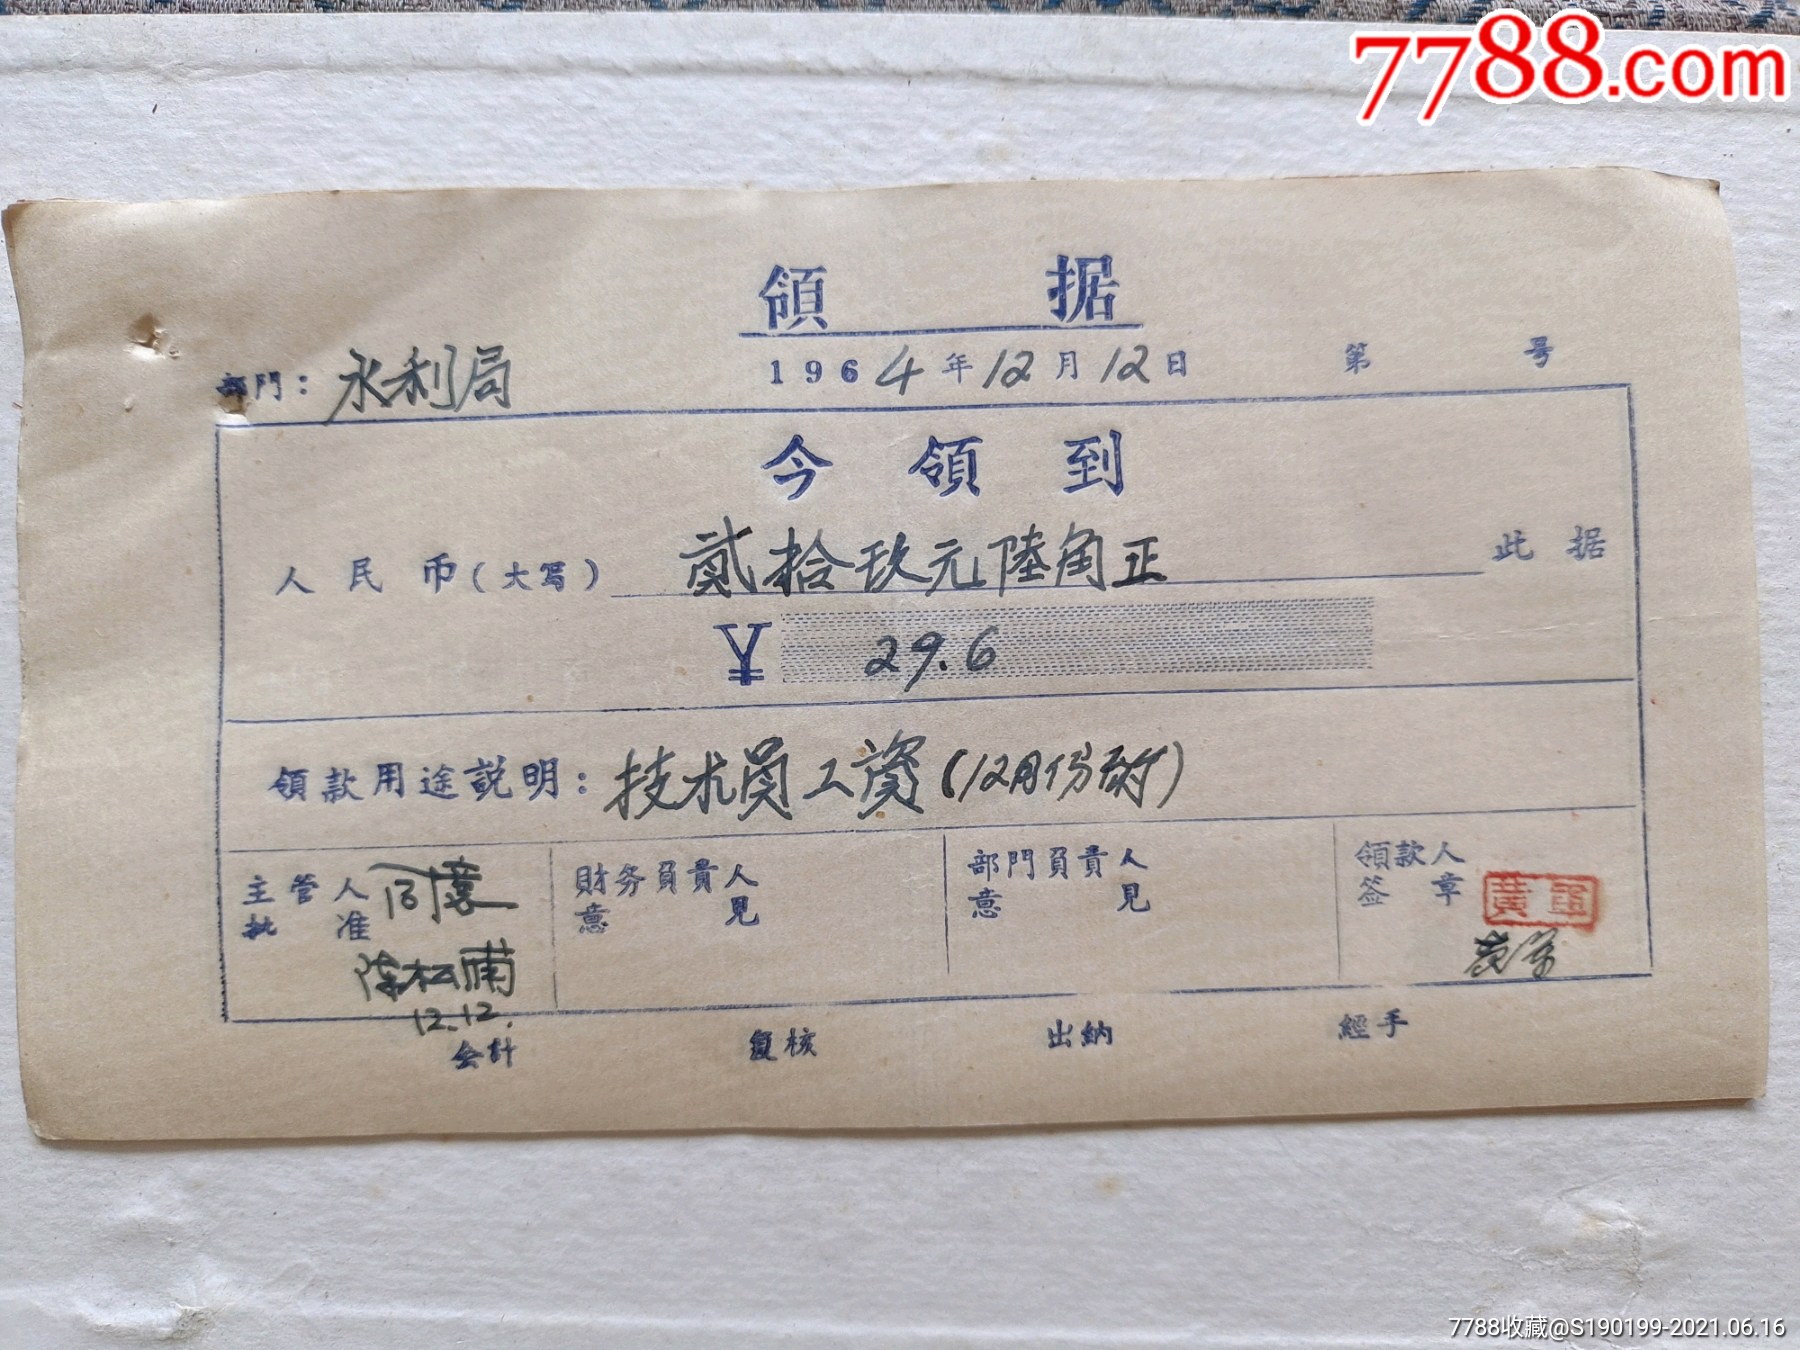 7788.com
領 据
部門：水利局 1964年12月12日 第 号
今領到
人民币(大写) 貳拾玖元陸角正 此据
¥ 29.6
領款用途説明：技术員工資(12月份
主管人
批准
同意
陈松
12.12.
財务負責人
意見
部門負責人
意見
領款人
签章
黄
黄
会計 复核 出納 經手
7788收藏@S190199-2021.06.16